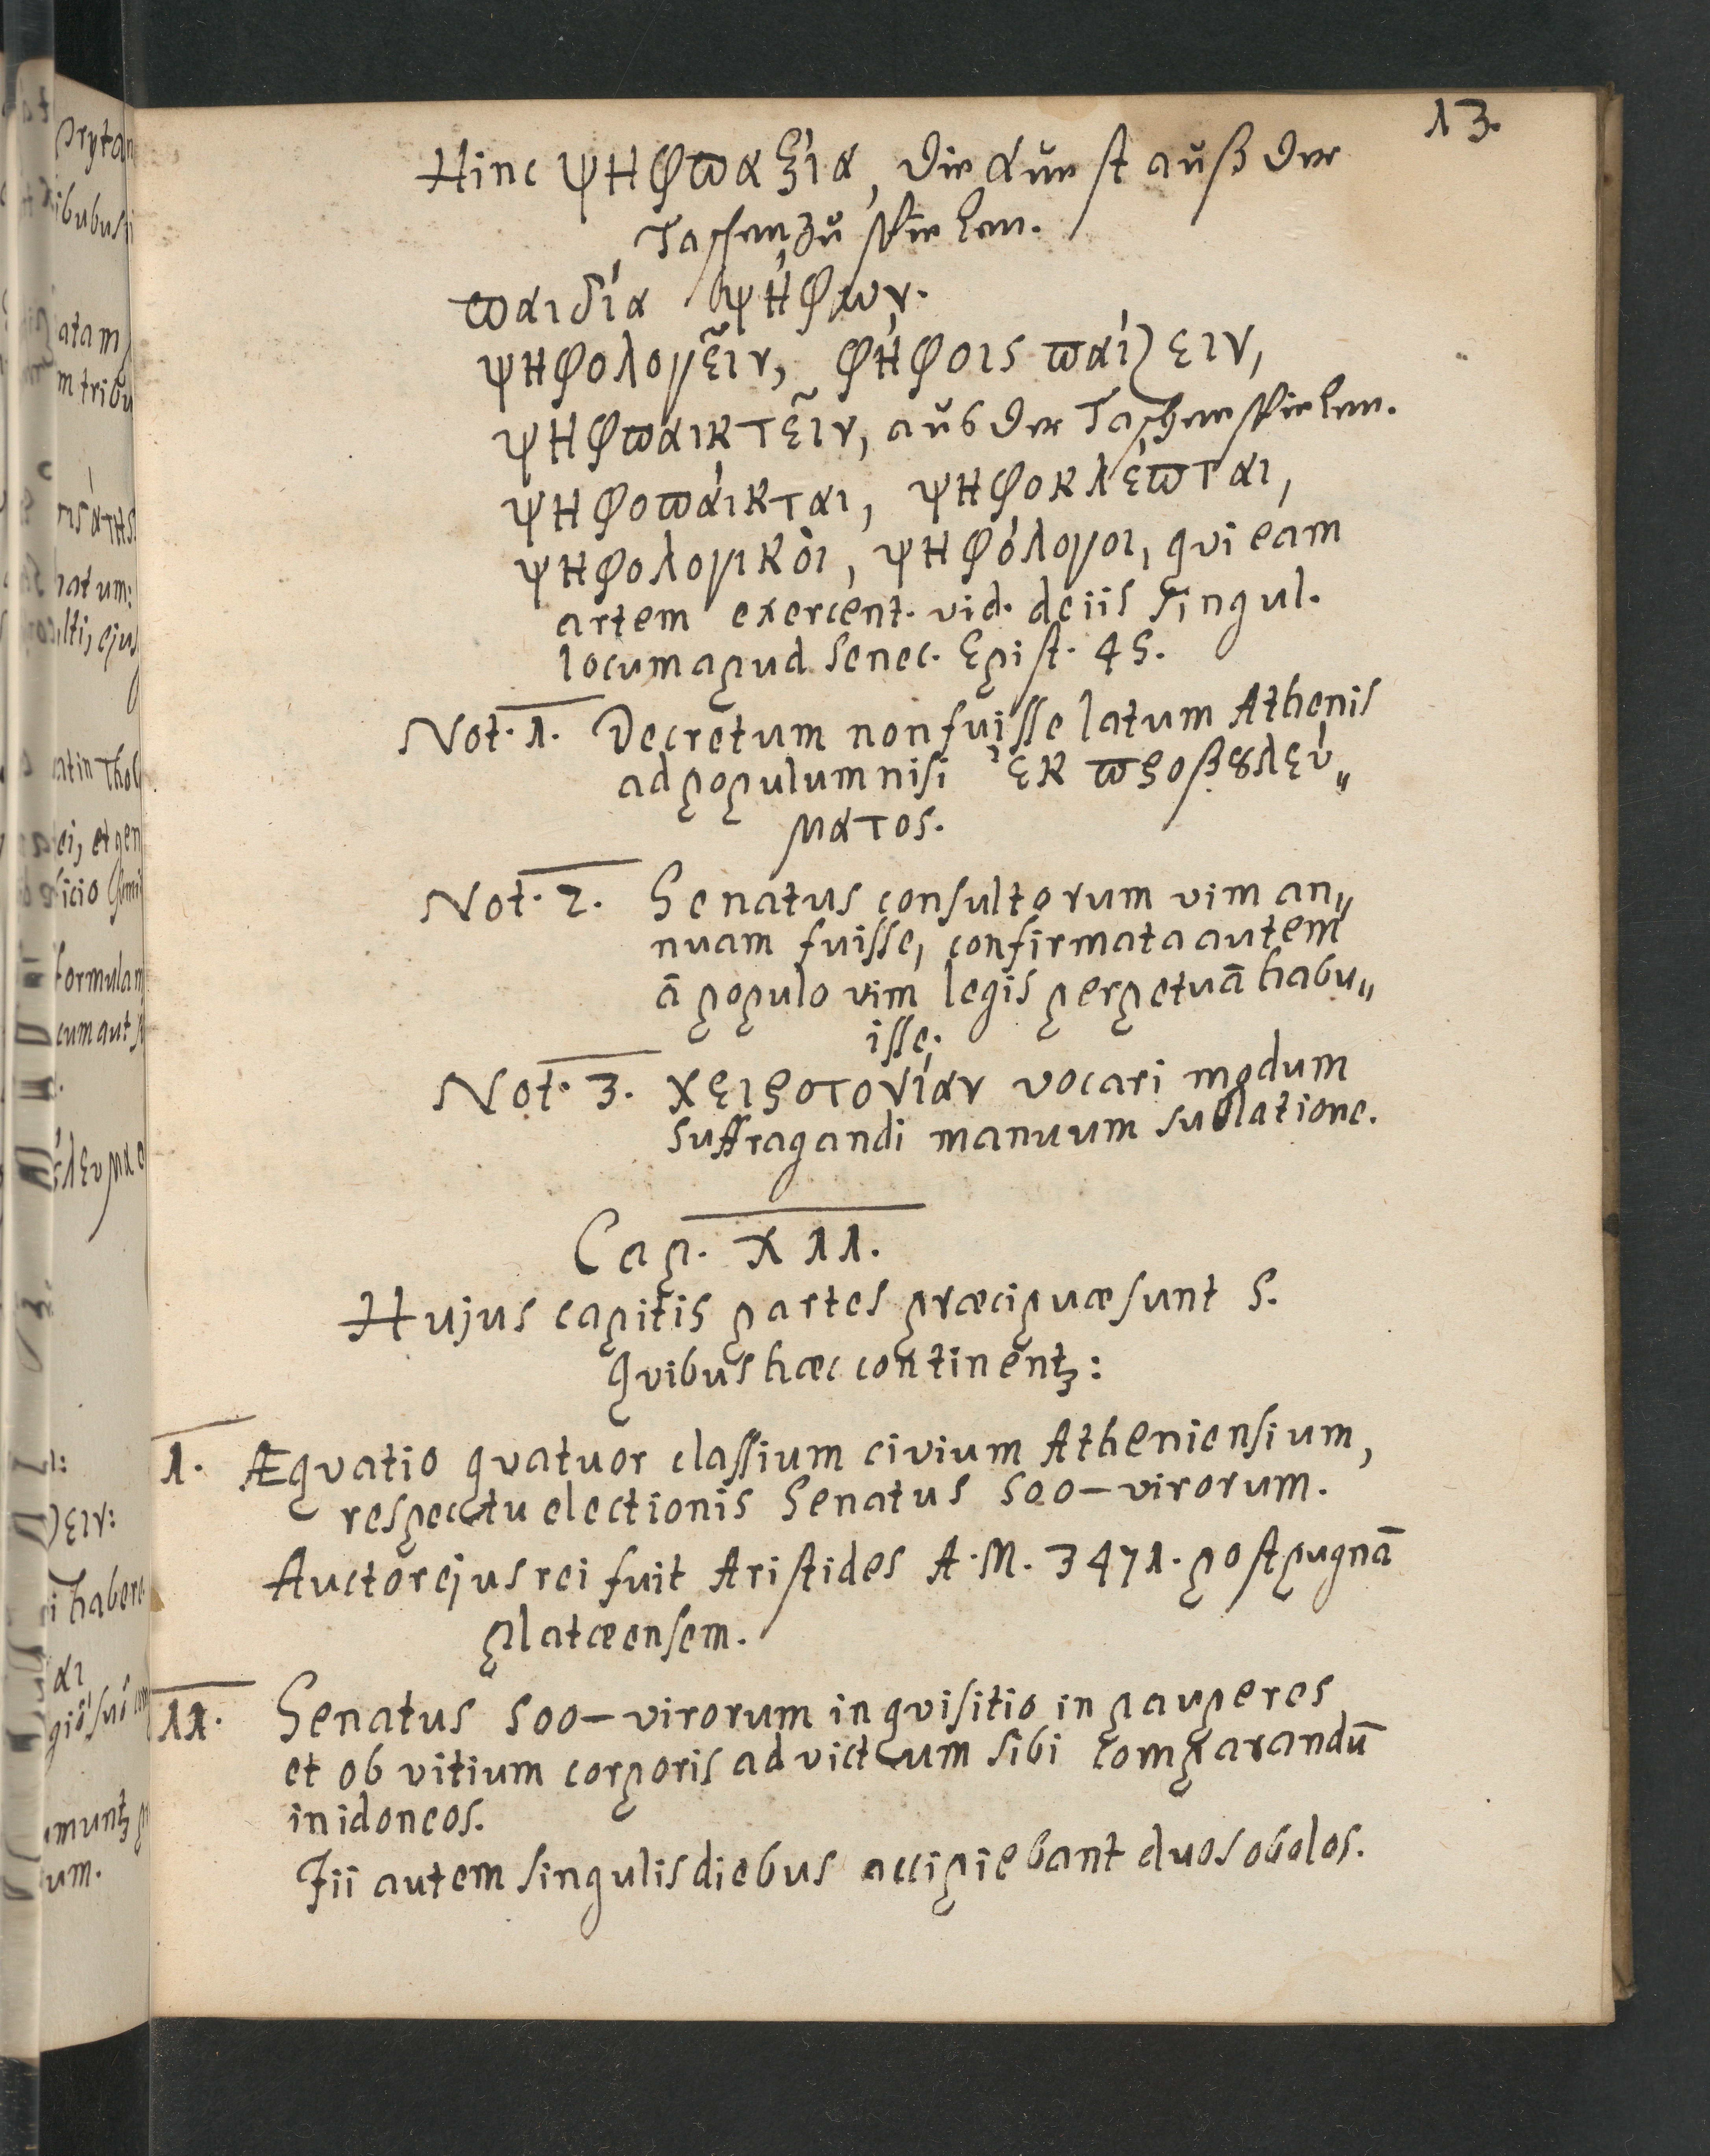 13.
Hinc ψηφϖαξία, die Kunst auß der
Taschen zu spielen.
ϖαιδία ψήφων.
ψηφολογεῖν, φήφοις ϖαίζειν,
ψηφϖαικτεῖν, aus der Taschen spielen.
ψηφοϖάικται, ψηφοκλέϖται,
ψηφολογικὸι, ψηφόλογοι, qvi eam
artem exercent. vid. de iis singul.
locum apud Senec. Epist. 45.
Not. 1. Decretum non fuisse latum Athenis
ad populum nisi ἐκ ϖροβȣλεύ„
ματος.
Not. 2. Senatus consultorum vim an„
nuam fuisse, confirmata autem
ā populo vim legis perpetuā habu„
isse.
Not. 3. χειροτονίαν vocari modum
suffragandi manuum sublatione.
Cap. XII.
Hujus capitis partes præcipuæ sunt 5.
qvibus hæc continentꝫ:
I. Æqvatio qvatuor classium civium Atheniensium,
respectu electionis Senatus 500-virorum.
Auctor ejus rei fuit Aristides A. M. 3471. post pugnā
Platæensem.
II. Senatus 500-virorum inqvisitio in pauperes
et ob vitium corporis ad victum sibi comparandū
inidoneos.
Iii autem singulis diebus accipiebant duos obolos.